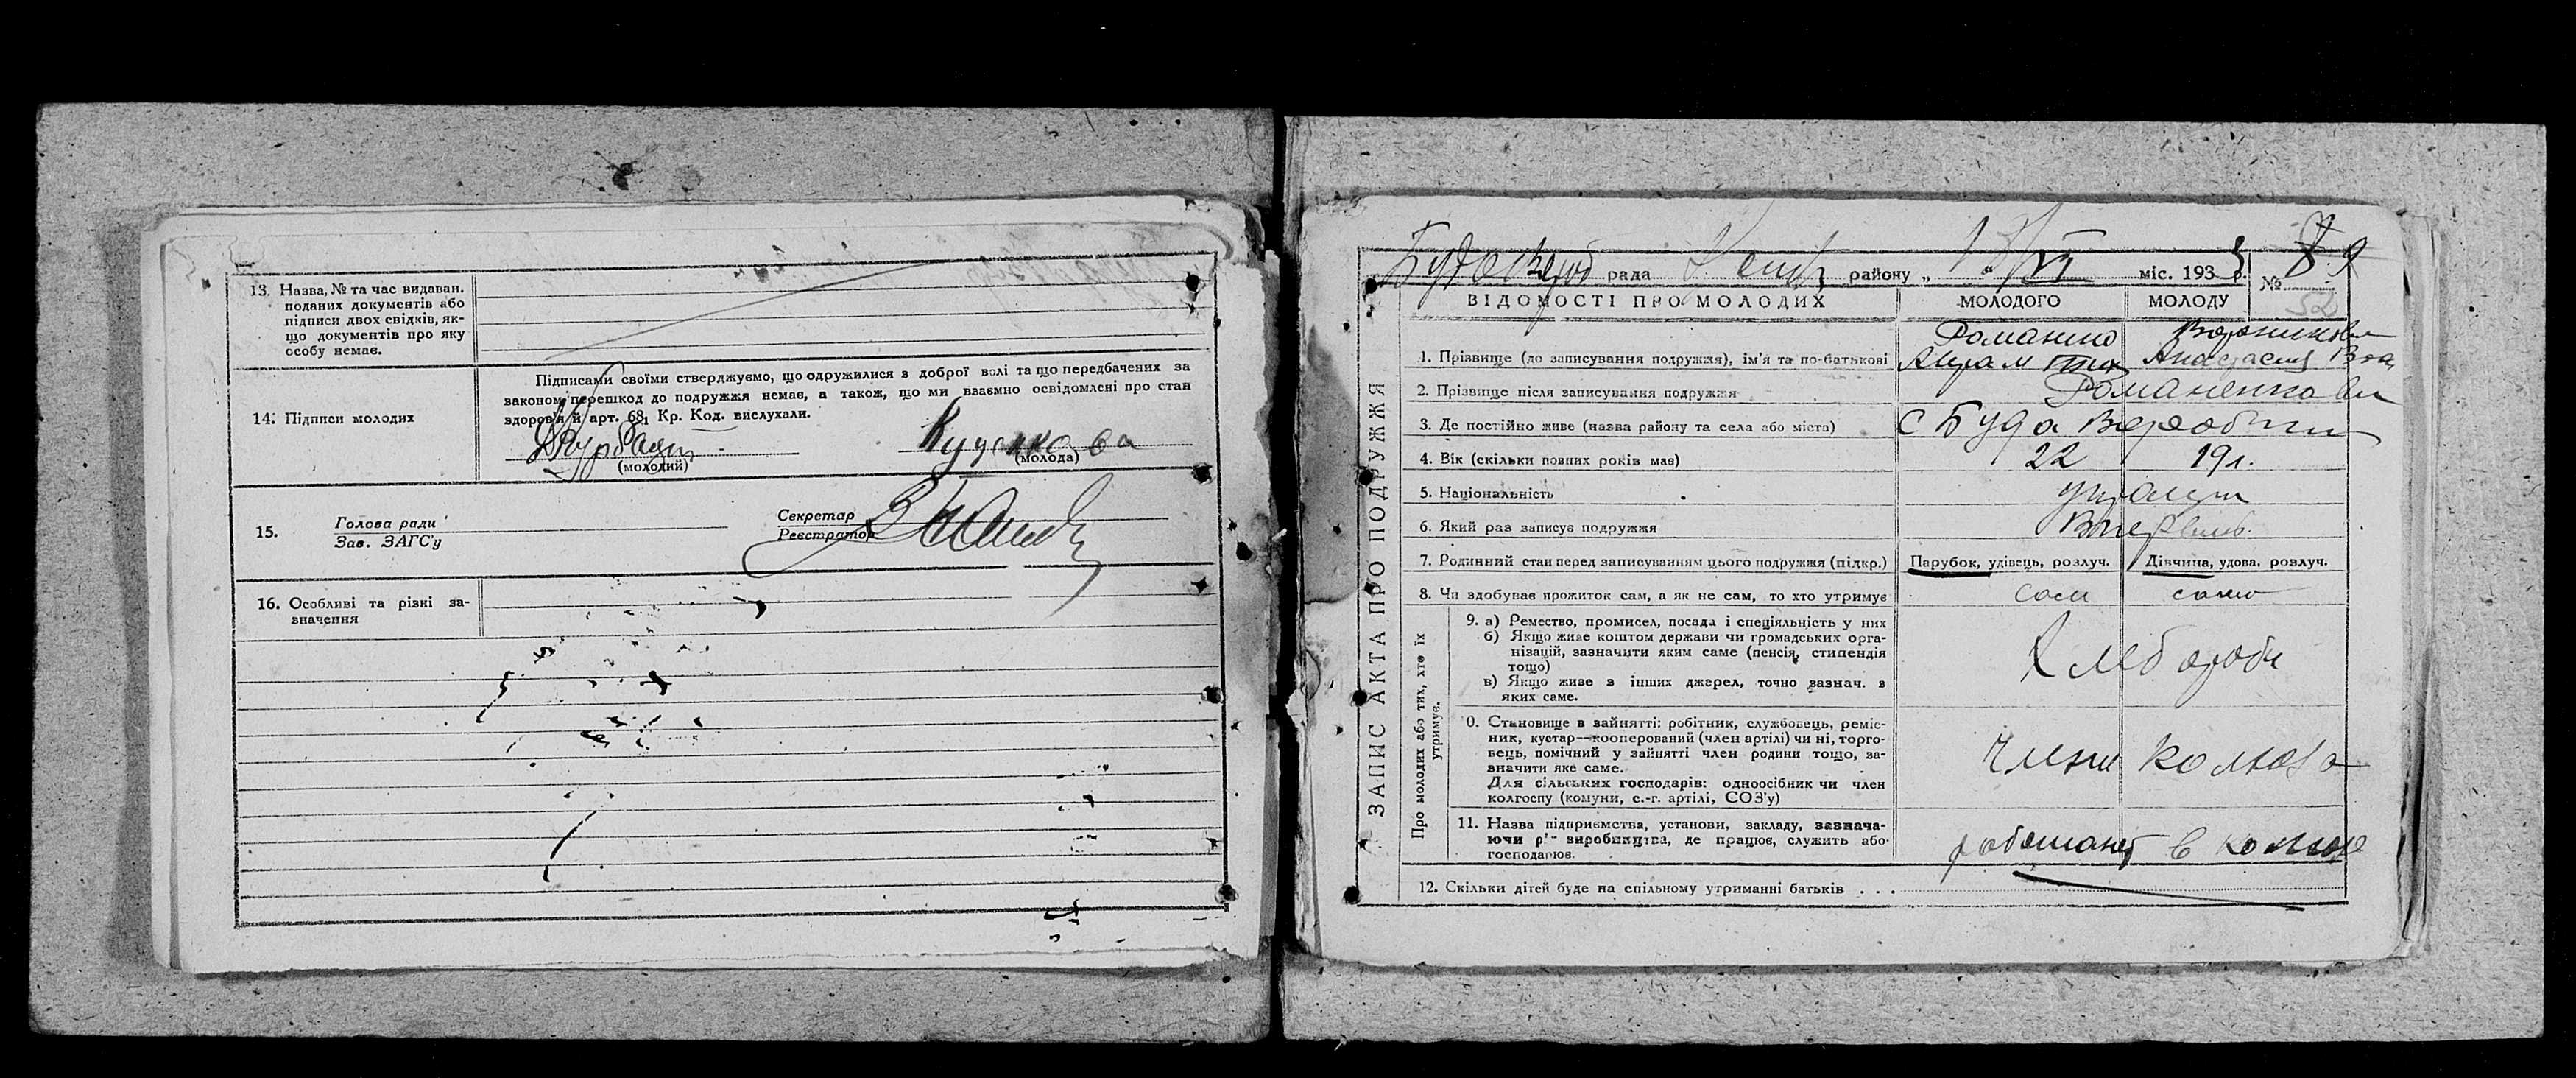 13. Назва, № та час видаван.
поданих документів або
підписи двох свідків, як-
що документів про яку
особу немає.
14. Підписи молодих
Підписами своїми стверджуємо, що одружилися з доброї волі та що передбачених за
законом перешкод до подружжя немає, а також, що ми взаємно освідомлені про стан
здоров'я й арт. 68, Кр. Код. вислухали.
(молодий)
(молода)
15.
Голова ради
Зав. ЗАГС'у
Секретар
Реєстратор
16. Особливі та різні за-
значення
рада району „ “ VI міс. 1933 р. № 89
52
ЗАПИС АКТА ПРО ПОДРУЖЖЯ
ВІДОМОСТІ ПРО МОЛОДИХ МОЛОДОГО МОЛОДУ
1. Прізвище (до записування подружжя), ім'я та по-батькові
Анастасия
2. Прізвище після записування подружжя
3. Де постійно живе (назва району та села або міста) с Буда
4. Вік (скільки повних років має) 22 19 л.
5. Національність
6. Який раз записує подружжя
7. Родинний стан перед записуванням цього подружжя (підкр.) Парубок, удівець, розлуч. Дівчина, удова, розлуч.
8. Чи здобуває прожиток сам, а як не сам, то хто утримує сам само
Про молодих або тих, хто їх утримує.
9. а) Ремество, промисел, посада і спеціяльність у них
б) Якщо живе коштом держави чи громадських орга-
нізацій, зазначити яким саме (пенсія, стипендія
тощо)
в) Якщо живе з інших джерел, точно зазнач. з
яких саме.
0. Становище в зайнятті: робітник, службовець, реміс-
ник, кустар—кооперований (член артілі) чи ні, торго-
вець, помічний у зайнятті член родини тощо, за-
значити яке саме.
Для сільських господарів: одноосібник чи член
колгоспу (комуни, с.-г. артілі, СОЗ'у)
члени колхоза
11. Назва підприємства, установи, закладу, зазнача-
ючи рід виробництва, де працює, служить або
господарює.
в колхозе
12. Скільки дітей буде на спільному утриманні батьків . . .